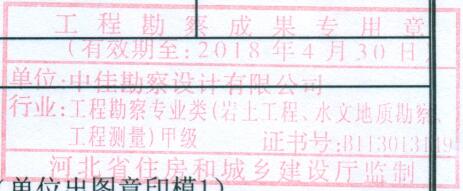 工程勘察成果专用章
(有效期至:2018年4月30日)
单位:中佳勘察设计有限公司
行业:工程勘察专业类(岩土工程、水文地质勘察、
工程测量)甲级 证书号:B113013149
河北省住房和城乡建设厅监制
(单位出图章印模1)